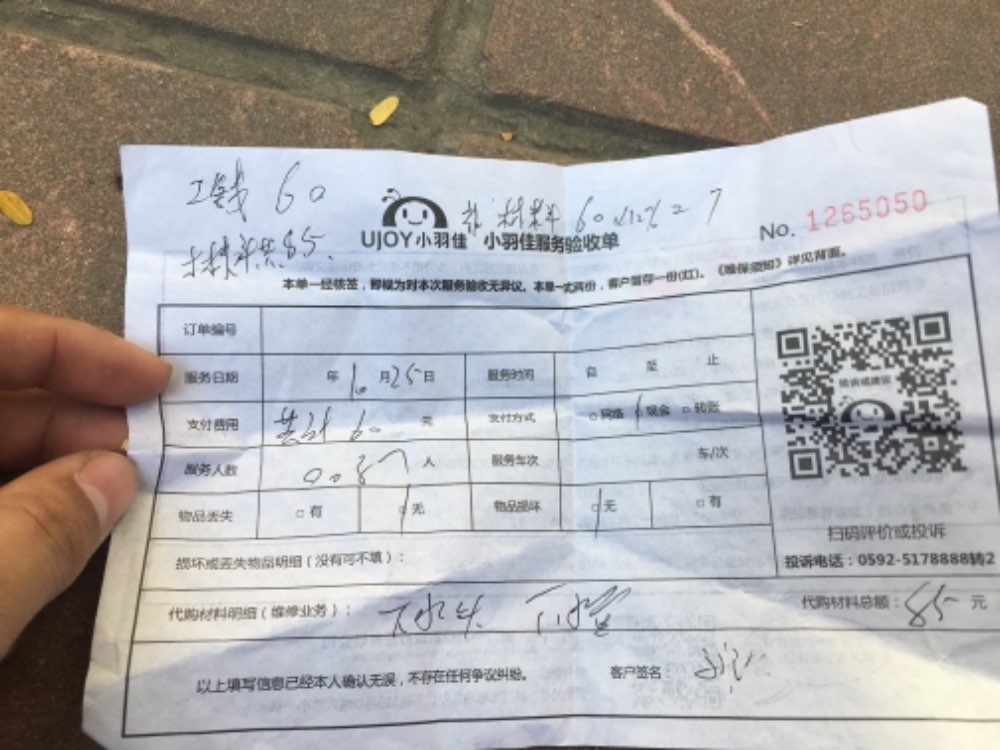 工钱 60
材料 60×12%=7
材料共85.
UJOY小羽佳 小羽佳服务验收单
No. 1265050
本单一经核签，即视为对本次服务验收无异议。本单一式两份，客户留存一份(红)。《维保须知》详见背面。
订单编号
服务日期 年 10 月 25 日 服务时间 自 至 止
支付费用 共计 60 元 支付方式 □网络 □现金 □转账
服务人数 人 服务车次 车/次
物品丢失 □有 □无 物品损坏 □无 □有
投诉或建议
扫码评价或投诉
投诉电话：0592-5178888转2
损坏或丢失物品明细（没有可不填）：
代购材料明细（维修业务）： 下水头 下水管 代购材料总额： 85 元
以上填写信息已经本人确认无误，不存在任何争议纠纷。 客户签名